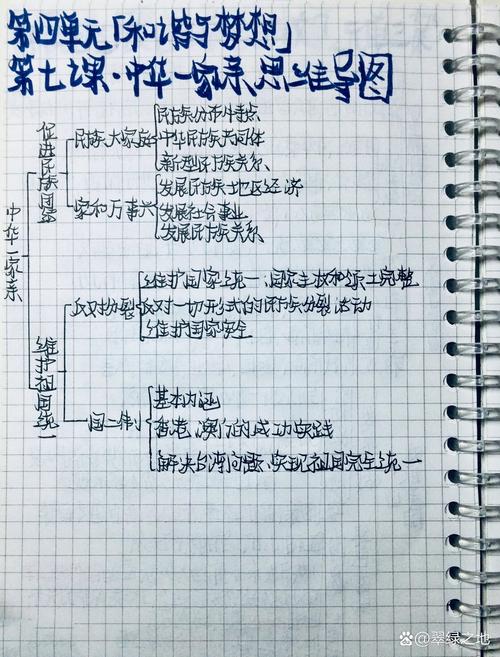 第四单元「和谐与梦想」
第七课·中华一家亲思维导图
中华一家亲
促进民族团结
民族大家庭
民族分布特点
中华民族共同体
新型民族关系
家和万事兴
发展民族地区经济
发展社会事业
发展民族关系
维护祖国统一
反对分裂
维护国家统一、国家主权和领土完整
反对一切形式的民族分裂活动
维护国家安全
一国二制
基本内涵
香港、澳门的成功实践
解决台湾问题、实现祖国完全统一
百家号@翠绿之地